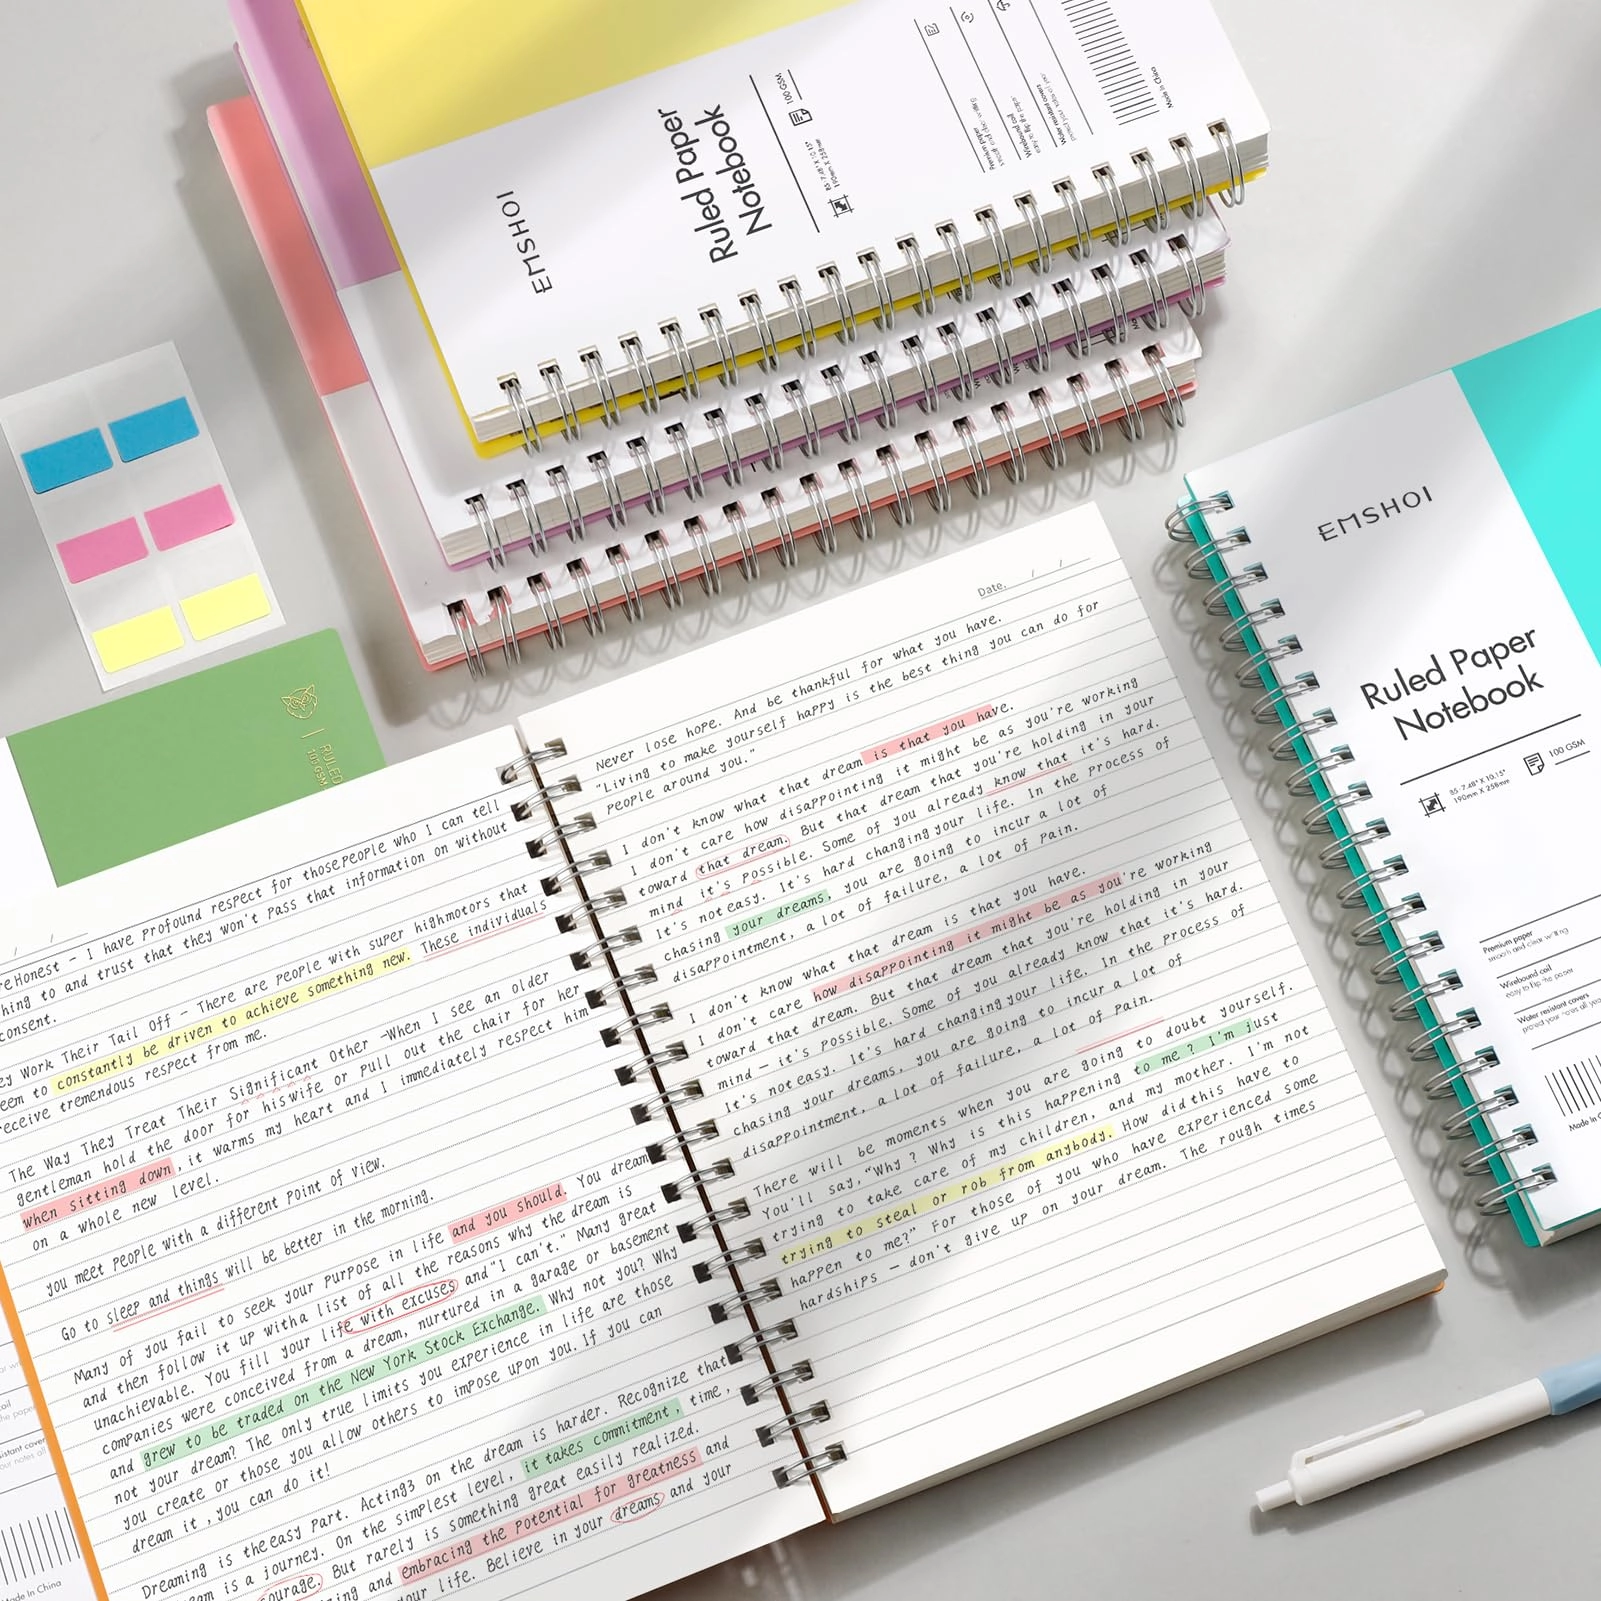 EMSHOI
Ruled Paper
Notebook
B5 7.48" X 10.15"
190mm X 258mm
100 GSM
Premium paper
Wirebound coil
easy to flip the paper
Water resistant covers
Made in China
RULED
100 GSM
EMSHOI
Ruled Paper
Notebook
B5 7.48" X 10.15"
190mm X 258mm
100 GSM
Premium paper
smooth and clear writing
Wirebound coil
easy to flip the paper
Water resistant covers
Made in C
Honest - I have profound respect for those people who I can tell
hing to and trust that they won't pass that information on without
consent.
ey Work Their Tail Off - There are people with super highmotors that
eem to constantly be driven to achieve something new. These individuals
receive tremendous respect from me.
The Way They Treat Their Significant Other -When I see an older
gentleman hold the door for his wife or pull out the chair for her
when sitting down, it warms my heart and I immediately respect him
on a whole new level.
you meet people with a different point of view.
Go to sleep and things will be better in the morning.
Many of you fail to seek your purpose in life and you should. You dream
and then follow it up with a list of all the reasons why the dream is
unachievable. You fill your life with excuses and "I can't." Many great
companies were conceived from a dream, nurtured in a garage or basement
and grew to be traded on the New York Stock Exchange. Why not you? Why
not your dream? The only true limits you experience in life are those
you create or those you allow others to impose upon you. If you can
dream it, you can do it!
Dreaming is the easy part. Acting3 on the dream is harder. Recognize that
eam is a journey. On the simplest level, it takes commitment, time,
ourage. But rarely is something great easily realized.
ing and embracing the potential for greatness and
our life. Believe in your dreams and your
Date. / /
Never lose hope. And be thankful for what you have.
"Living to make yourself happy is the best thing you can do for
people around you."
I don't know what that dream is that you have.
I don't care how disappointing it might be as you're working
toward that dream. But that dream that you're holding in your
mind it's possible. Some of you already know that it's hard.
It's not easy. It's hard changing your life. In the process of
chasing your dreams, you are going to incur a lot of
disappointment, a lot of failure, a lot of pain.
I don't know what that dream is that you have.
I don't care how disappointing it might be as you're working
toward that dream. But that dream that you're holding in your
mind — it's possible. Some of you already know that it's hard.
It's not easy. It's hard changing your life. In the process of
chasing your dreams, you are going to incur a lot of
disappointment, a lot of failure, a lot of pain.
There will be moments when you are going to doubt yourself.
You'll say, "Why? Why is this happening to me? I'm just
trying to take care of my children, and my mother. I'm not
trying to steal or rob from anybody. How did this have to
happen to me?" For those of you who have experienced some
hardships — don't give up on your dream. The rough times
Made in China